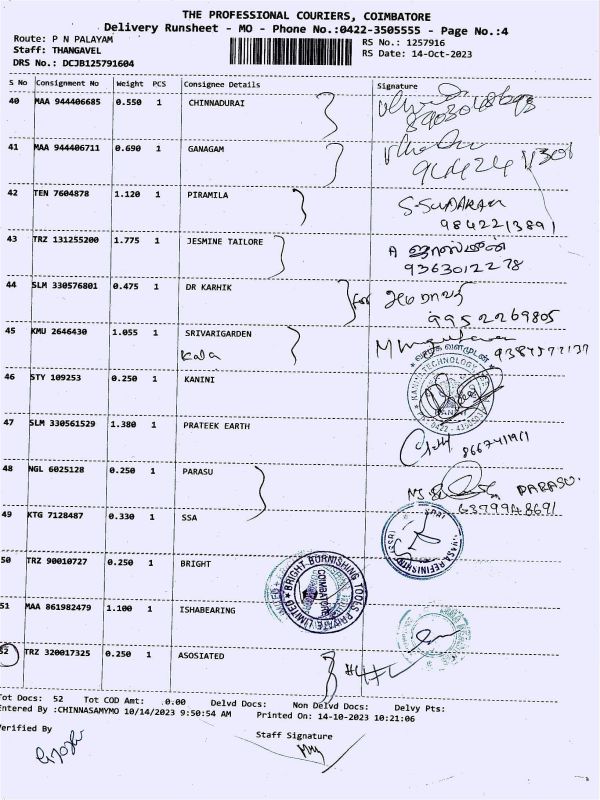 THE PROFESSIONAL COURIERS, COIMBATORE
Delivery Runsheet - MO - Phone No.:0422-3505555 - Page No.:4
Route: P N PALAYAM
RS No.: 1257916
Staff: THANGAVEL
RS Date: 14-Oct-2023
DRS No.: DCJB125791604
S No Consignment No Weight PCS Consignee Details Signature
40 MAA 944406685 0.550 1 CHINNADURAI
41 MAA 944406711 0.690 1 GANAGAM
42 TEN 7604878 1.120 1 PIRAMILA S-SUNDARAM
9842213891
43 TRZ 131255200 1.775 1 JESMINE TAILORE
9363012278
44 SLM 330576801 0.475 1 DR KARHIK for
9952269805
45 KMU 2646430 1.055 1 SRIVARIGARDEN
Kala
46 STY 109253 0.250 1 KANINI KANINI TECHNOLOGY
47 SLM 330561529 1.380 1 PRATEEK EARTH
48 NGL 6025128 0.250 1 PARASU PARASU.
6379948691
49 KTG 7128487 0.330 1 SSA
50 TRZ 90010727 0.250 1 BRIGHT BRIGHT BURNISHING TOOLS PRIVATE LIMITED COIMBATORE
51 MAA 861982479 1.100 1 ISHABEARING
52 TRZ 320017325 0.250 1 ASOSIATED
Tot Docs: 52 Tot COD Amt: 0.00 Delvd Docs: Non Delvd Docs: Delvy Pts:
Entered By :CHINNASAMYMO 10/14/2023 9:50:54 AM Printed On: 14-10-2023 10:21:06
Verified By
Staff Signature